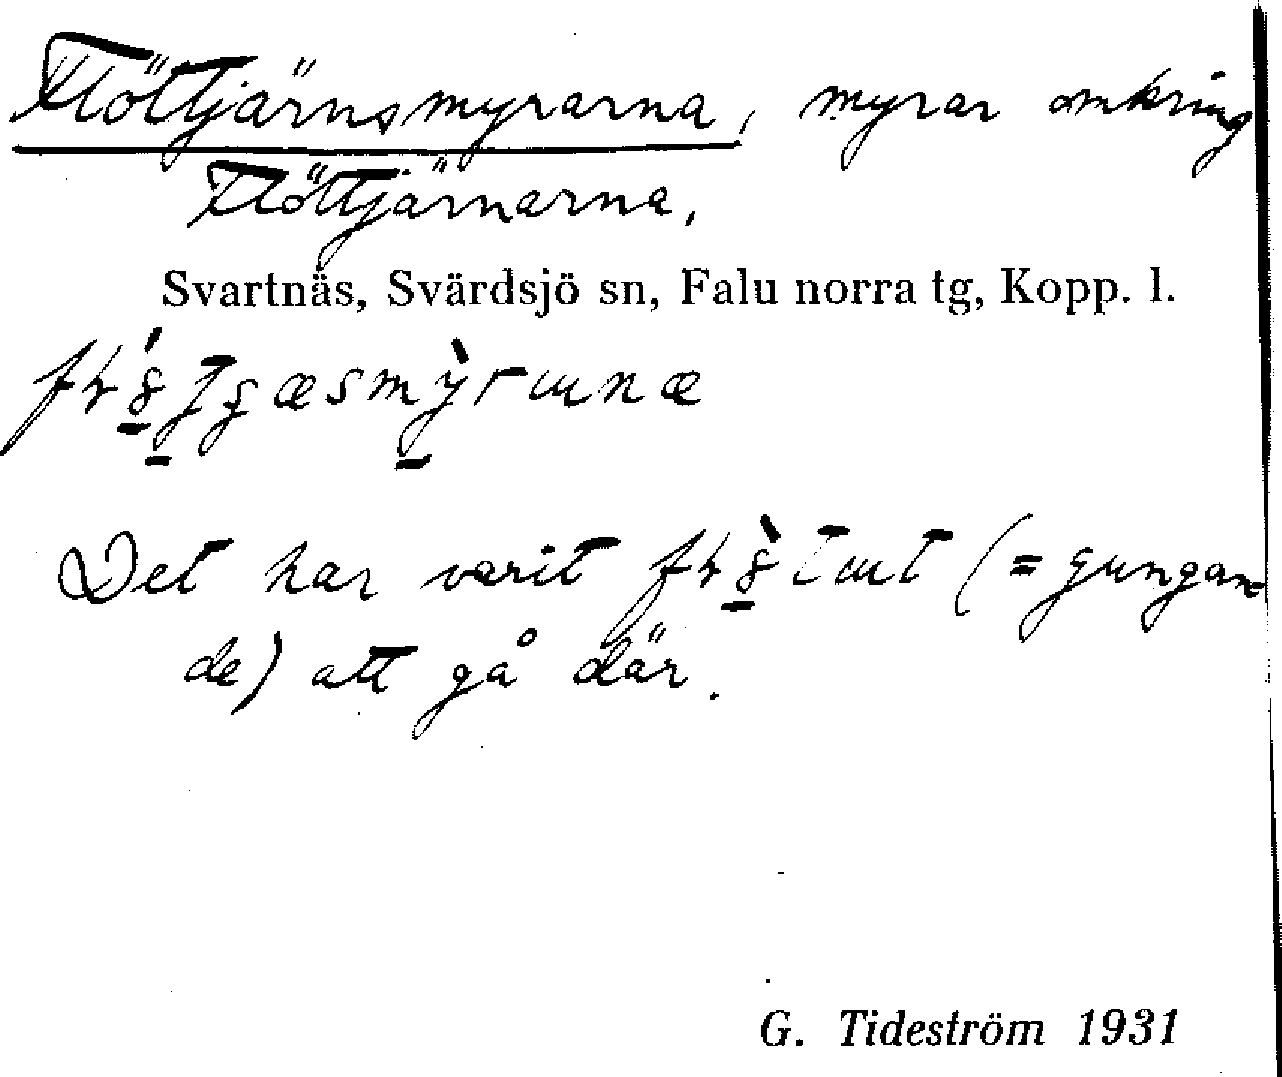 Flöttjärnsmyrarna, myrar omkring
Flöttjärnarna,
Svartnäs, Svärdsjö sn, Falu norra tg, Kopp. l.
Det har varit (= gungan-
de) att gå där.
G. Tideström 1931